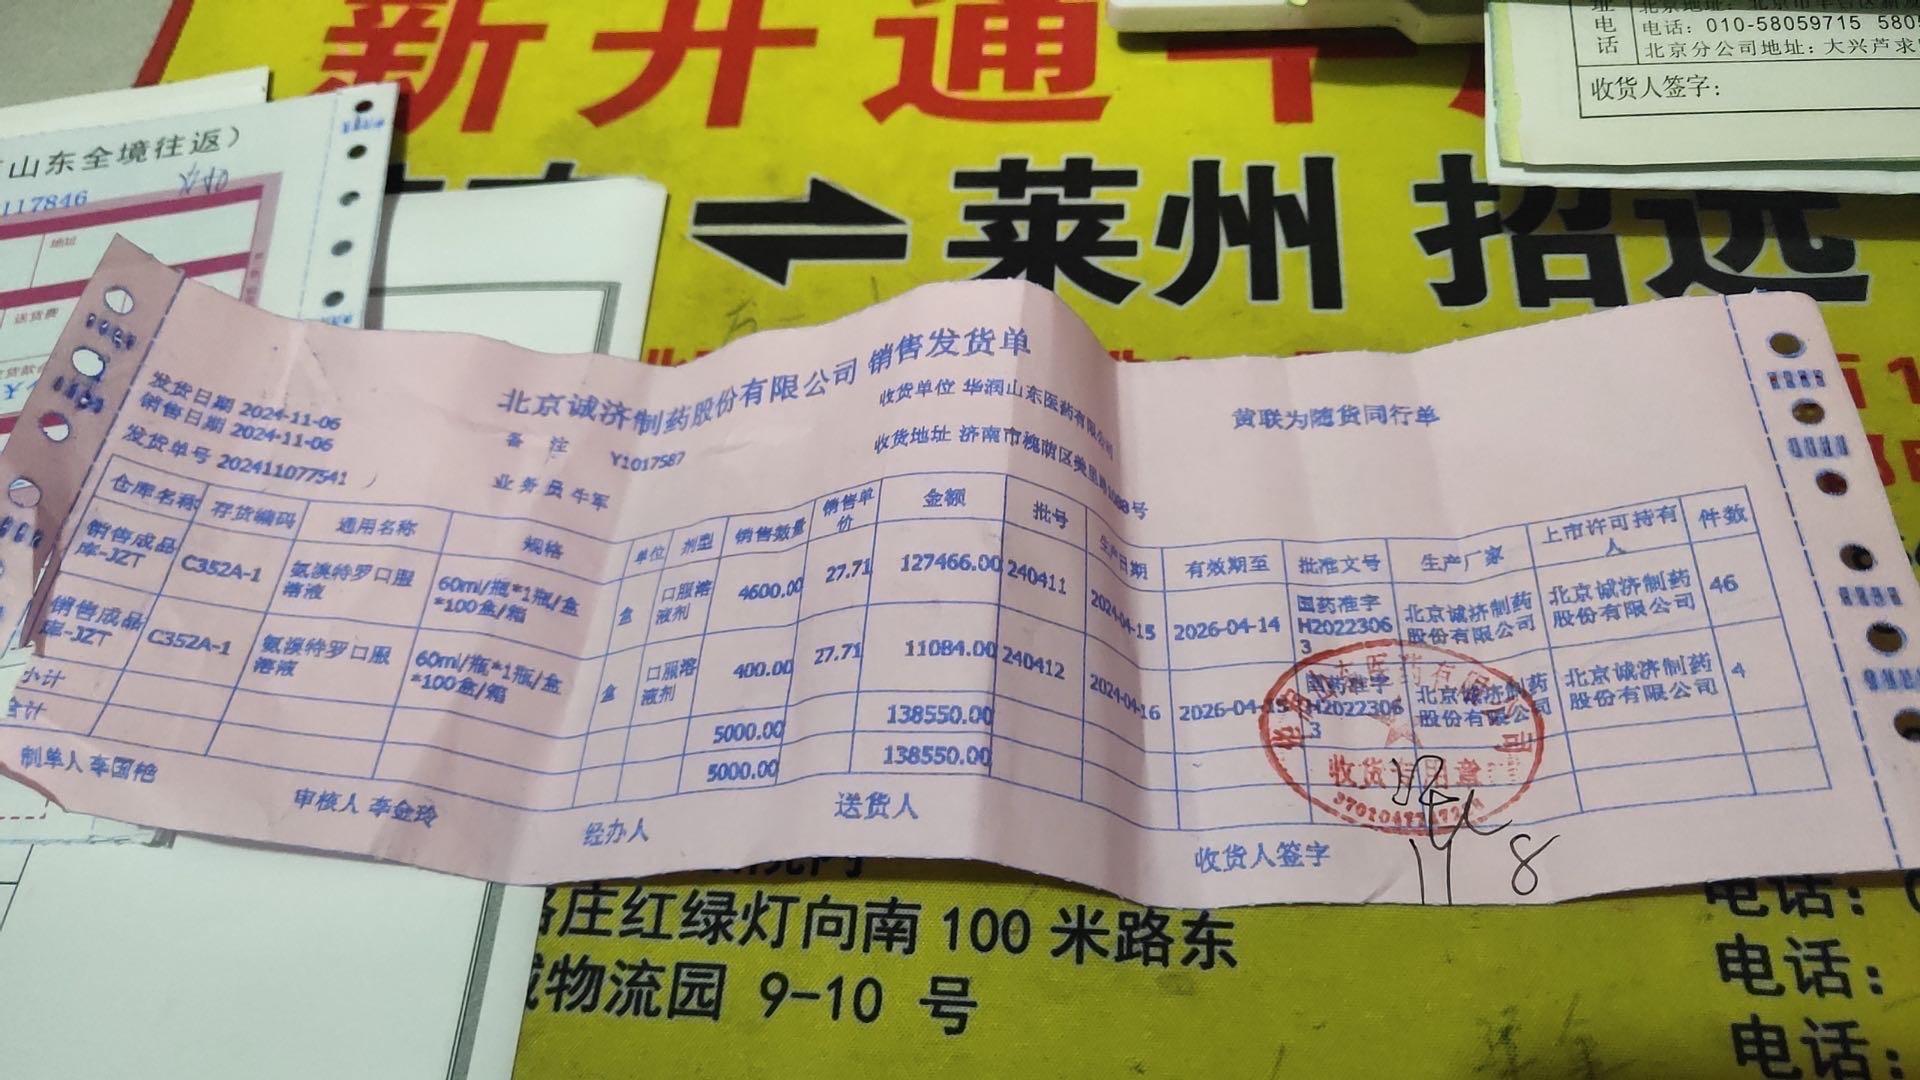 新开通
莱州 招远
山东全境往返）
117846
地址
送货费
电话
电话：010-58059715
北京分公司地址：大兴芦求
收货人签字：
北京诚济制药股份有限公司 销售发货单
发货日期 2024-11-06
销售日期 2024-11-06
发货单号 202411077541
备 注 Y1017587
业务员 牛军
收货单位 华润山东医药有限公司
收货地址 济南市槐荫区美里路1088号
黄联为随货同行单
仓库名称 存货编码 通用名称 规格 单位 剂型 销售数量 销售单价 金额 批号 生产日期 有效期至 批准文号 生产厂家 上市许可持有人 件数
销售成品库-JZT C352A-1 氨溴特罗口服溶液 60ml/瓶*1瓶/盒*100盒/箱 盒 口服溶液剂 4600.00 27.71 127466.00 240411 2024-04-15 2026-04-14 国药准字H20223063 北京诚济制药股份有限公司 北京诚济制药股份有限公司 46
销售成品库-JZT C352A-1 氨溴特罗口服溶液 60ml/瓶*1瓶/盒*100盒/箱 盒 口服溶液剂 400.00 27.71 11084.00 240412 2024-04-16 2026-04-15 国药准字H20223063 北京诚济制药股份有限公司 北京诚济制药股份有限公司 4
小计 5000.00 138550.00
合计 5000.00 138550.00
制单人 李国艳 审核人 李金玲 经办人 送货人 收货人签字
收货专用章
8
庄红绿灯向南 100 米路东
物流园 9-10 号
电话：
电话：
电话：